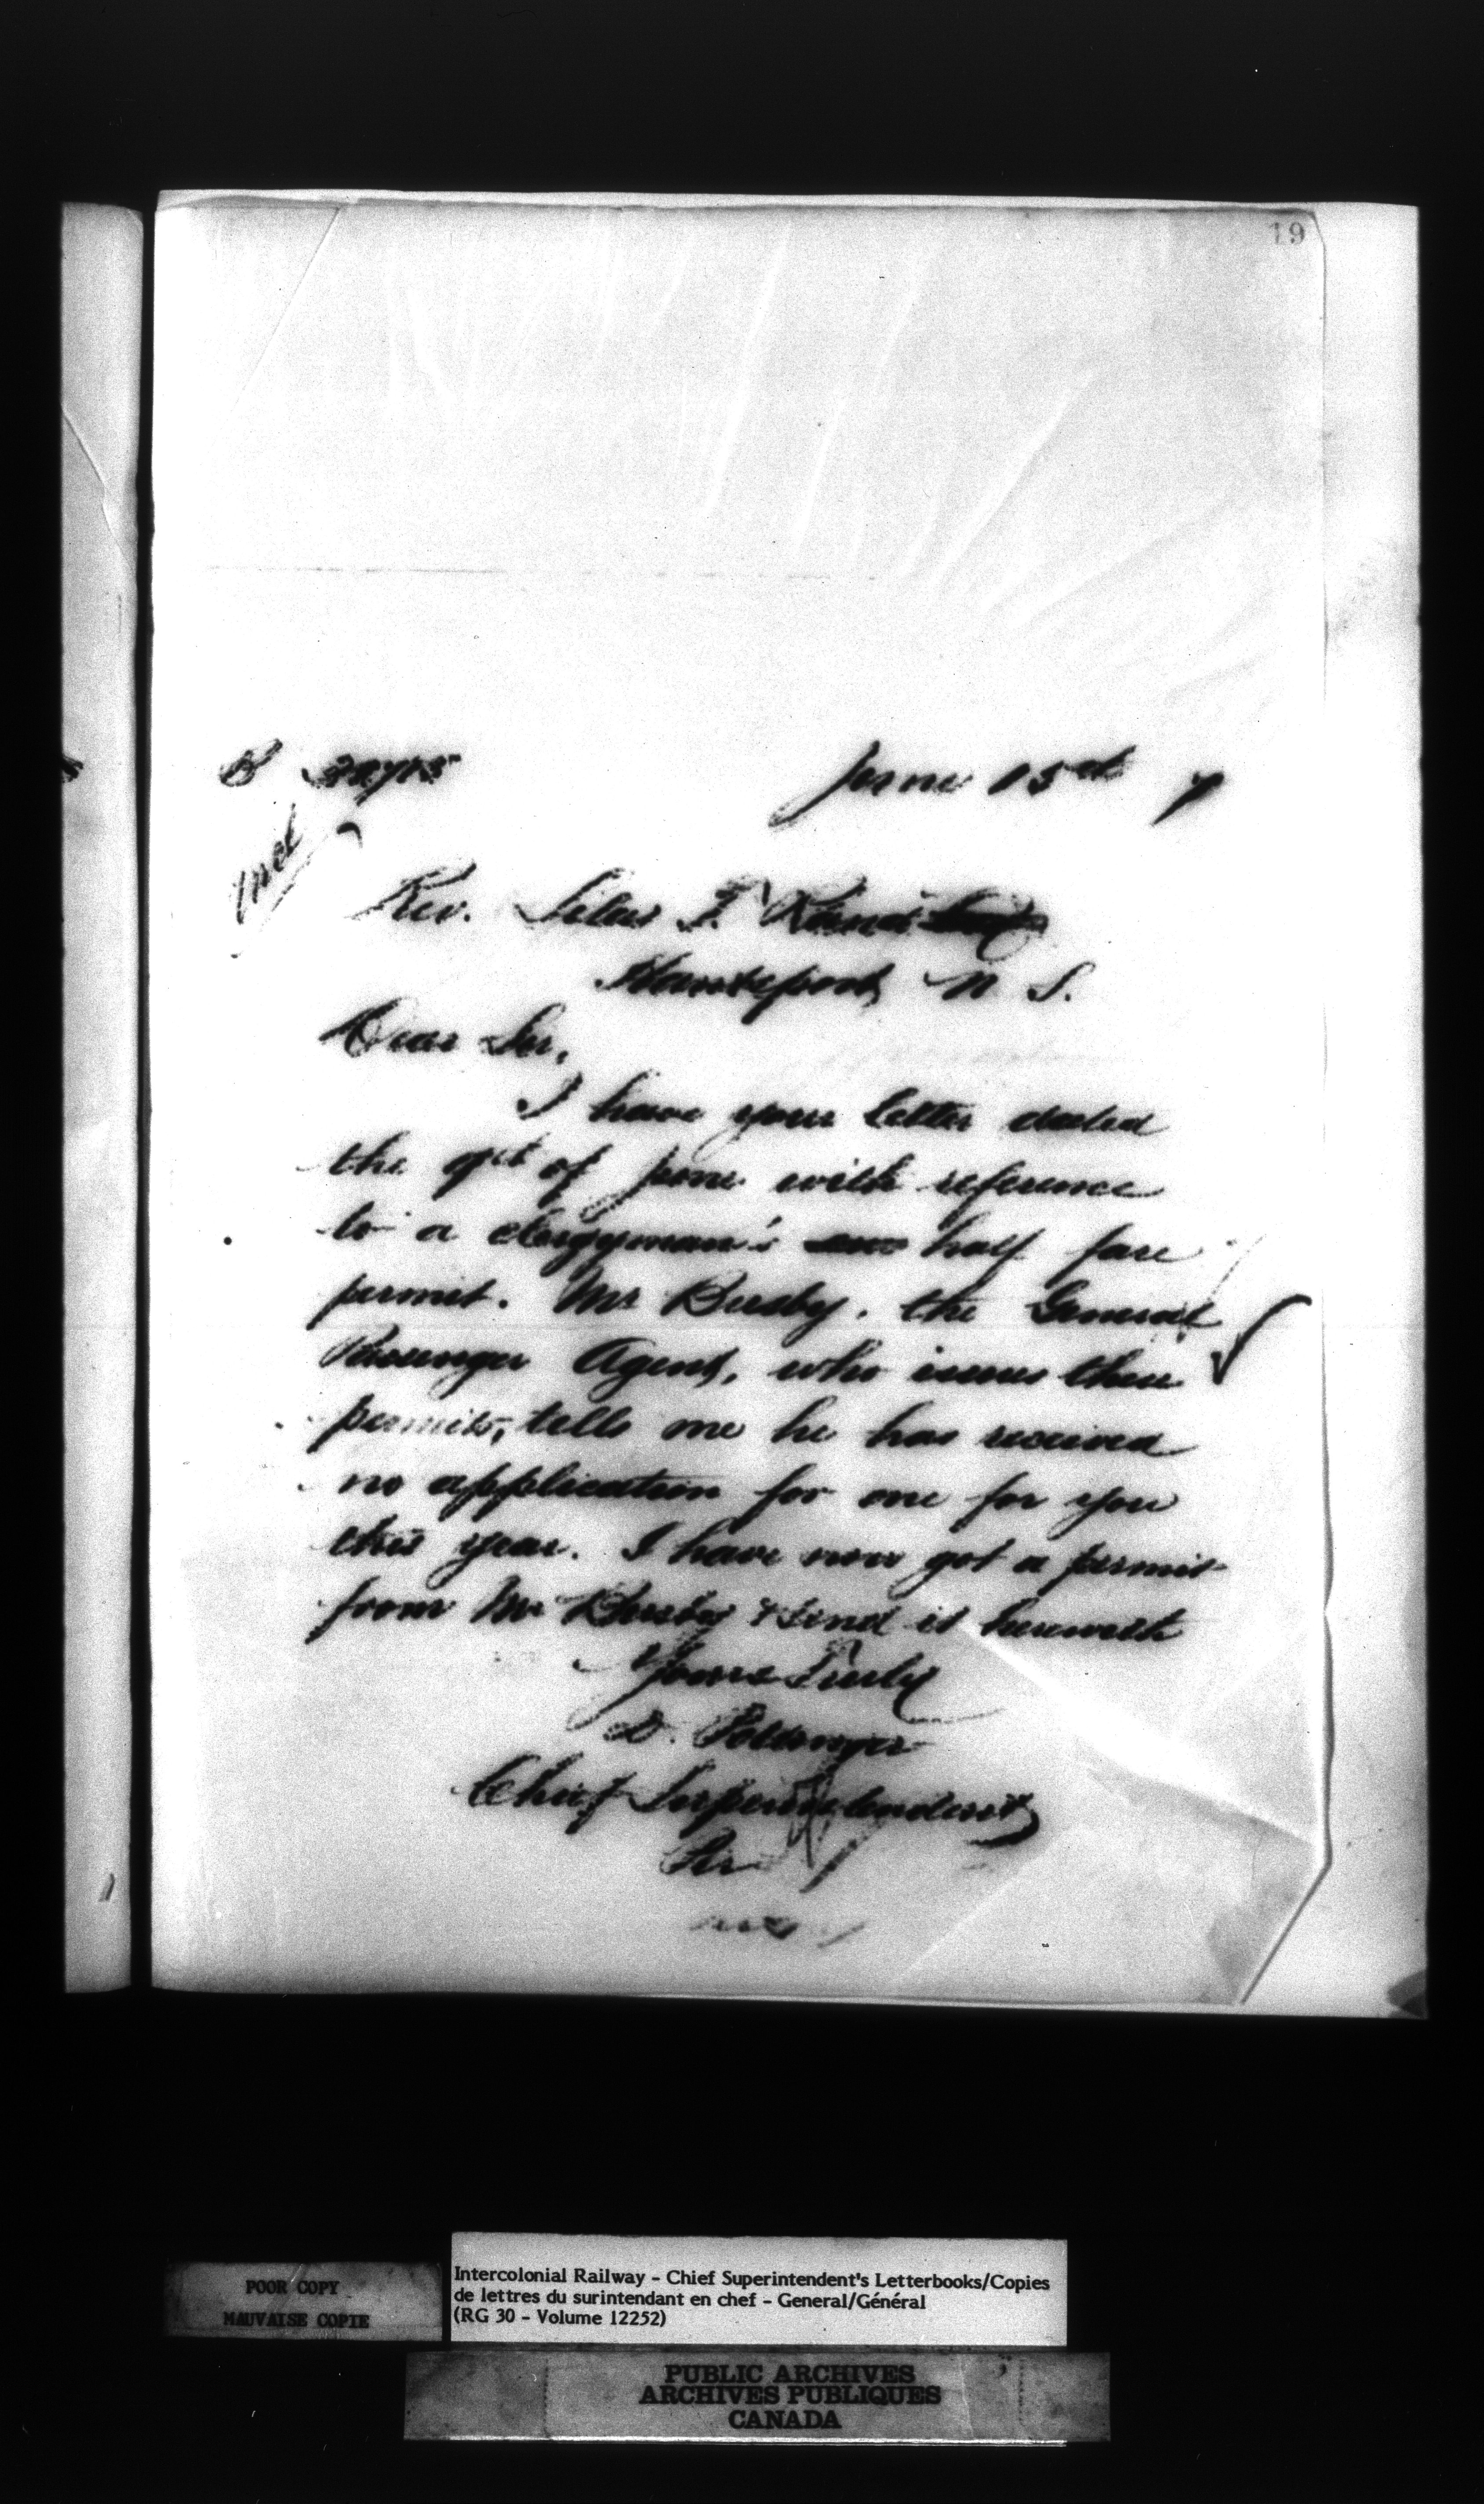 19
B 32715 June 15th 7
Incl
Rev. Silas T. Rand
Hantsport, N. S.
Dear Sir,
I have your letter dated
the 9th of June with reference
to a clergyman's half fare
permit. Mr Busby, the General
Passenger Agent, who issues these
permits, tells me he has received
no application for one for you
this year. I have now got a permit
from Mr Busby & send it herewith
Yours Truly
D. Pottinger
Chief Superintendent
POOR COPY
MAUVAISE COPIE
Intercolonial Railway - Chief Superintendent's Letterbooks/Copies
de lettres du surintendant en chef - General/Général
(RG 30 - Volume 12252)
PUBLIC ARCHIVES
ARCHIVES PUBLIQUES
CANADA